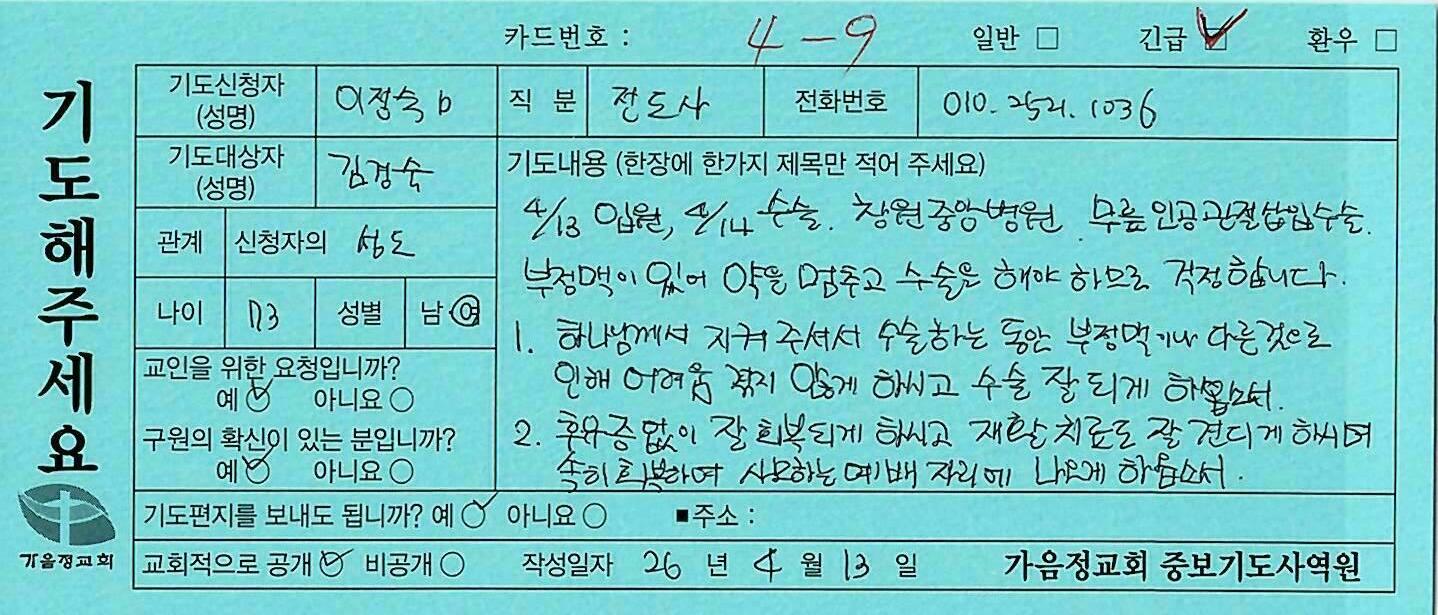 카드번호 : 4-9 일반 □ 긴급 ☑ 환우 □
기도해주세요
기도신청자 (성명) 이정숙 b 직 분 전도사 전화번호 010-2521-1036
기도대상자 (성명) 김경숙
관계 신청자의 성도
나이 73 성별 남 여
교인을 위한 요청입니까?
예 ○ 아니요 ○
구원의 확신이 있는 분입니까?
예 ○ 아니요 ○
기도내용 (한장에 한가지 제목만 적어 주세요)
4/13 입원, 4/14 수술. 창원중앙병원. 무릎인공관절삽입수술.
부정맥이 있어 약을 멈추고 수술을 해야 하므로 걱정합니다.
1. 하나님께서 지켜 주셔서 수술하는 동안 부정맥이나 다른것으로
인해 어려움 겪지 않게 하시고 수술 잘 되게 하옵소서.
2. 후유증없이 잘 회복되게 하시고 재활치료도 잘 견디게 하시며
속히 회복하여 사모하는 예배 자리에 나오게 하옵소서.
기도편지를 보내도 됩니까? 예 ○ 아니요 ○ ■주소 :
교회적으로 공개 ○ 비공개 ○ 작성일자 26 년 4 월 13 일 가음정교회 중보기도사역원
가음정교회